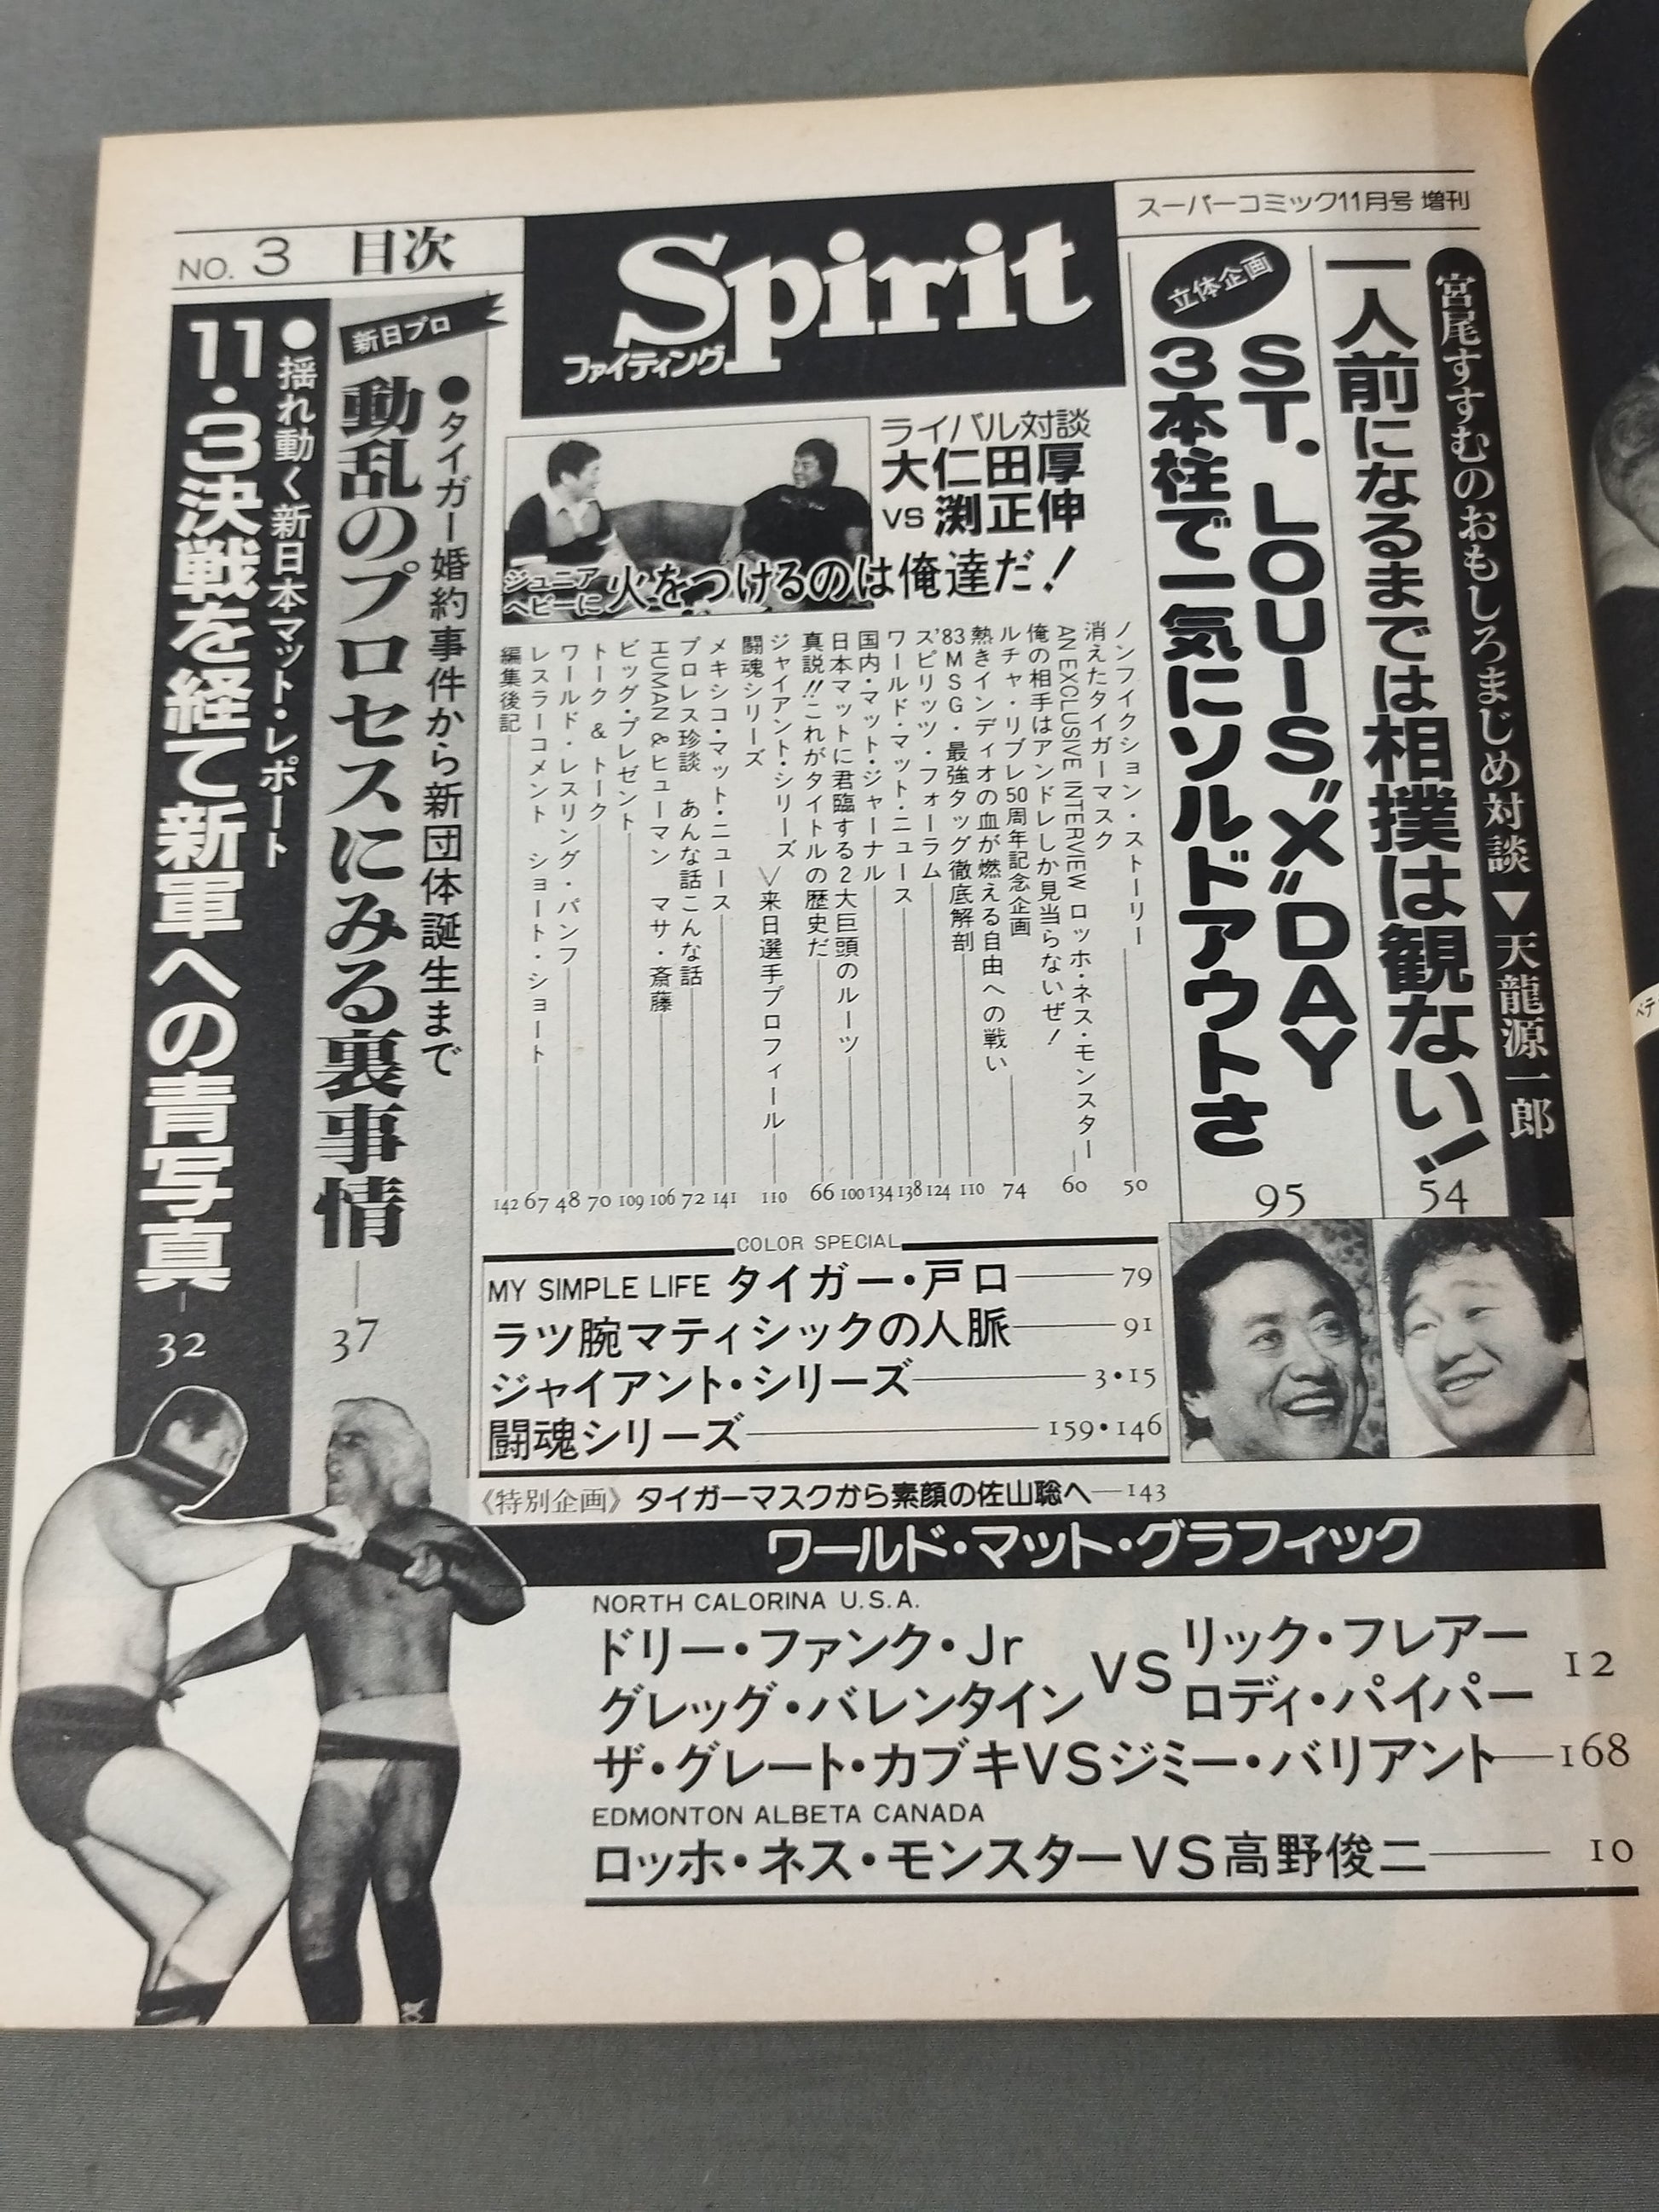 スーパーコミック11月号 増刊
NO. 3 目次
Spirit
ファイティング
宮尾すすむのおもしろまじめ対談▼天龍源一郎
一人前になるまでは相撲は観ない!
54
立体企画
ST. LOUIS"X"DAY
3本柱で一気にソルドアウトさ
95
ライバル対談
大仁田厚
VS 渕正伸
ジュニア
ヘビーに
火をつけるのは俺達だ!
ノンフィクション・ストーリー
消えたタイガーマスク
50
AN EXCLUSIVE INTERVIEW ロッホ・ネス・モンスター
俺の相手はアンドレしか見当らないぜ!
60
ルチャ・リブレ50周年記念企画
熱きインディオの血が燃える自由への戦い
74
'83MSG・最強タッグ徹底解剖
110
スピリッツ・フォーラム
124
ワールド・マット・ニュース
138
国内・マット・ジャーナル
134
日本マットに君臨する2大巨頭のルーツ
100
真説!!これがタイトルの歴史だ
66
ジャイアント・シリーズ
闘魂シリーズ
>来日選手プロフィール
110
メキシコ・マット・ニュース
141
プロレス珍談 あんな話こんな話
72
HUMAN&ヒューマン マサ・斎藤
106
ビッグ・プレゼント
109
トーク & トーク
70
ワールド・レスリング・パンフ
48
レスラーコメント ショート・ショート
67
編集後記
142
新日プロ
●タイガー婚約事件から新団体誕生まで
動乱のプロセスにみる裏事情
37
●揺れ動く新日本マット・レポート
11・3決戦を経て新軍への青写真
32
COLOR SPECIAL
MY SIMPLE LIFE タイガー・戸口 79
ラツ腕マティシックの人脈 91
ジャイアント・シリーズ 3・15
闘魂シリーズ 159・146
《特別企画》タイガーマスクから素顔の佐山聡へ 143
ワールド・マット・グラフィック
NORTH CALORINA U.S.A.
ドリー・ファンク・Jr
グレッグ・バレンタイン
VS
リック・フレアー
ロディ・パイパー
12
ザ・グレート・カブキVSジミー・バリアント 168
EDMONTON ALBETA CANADA
ロッホ・ネス・モンスターVS高野俊二 10